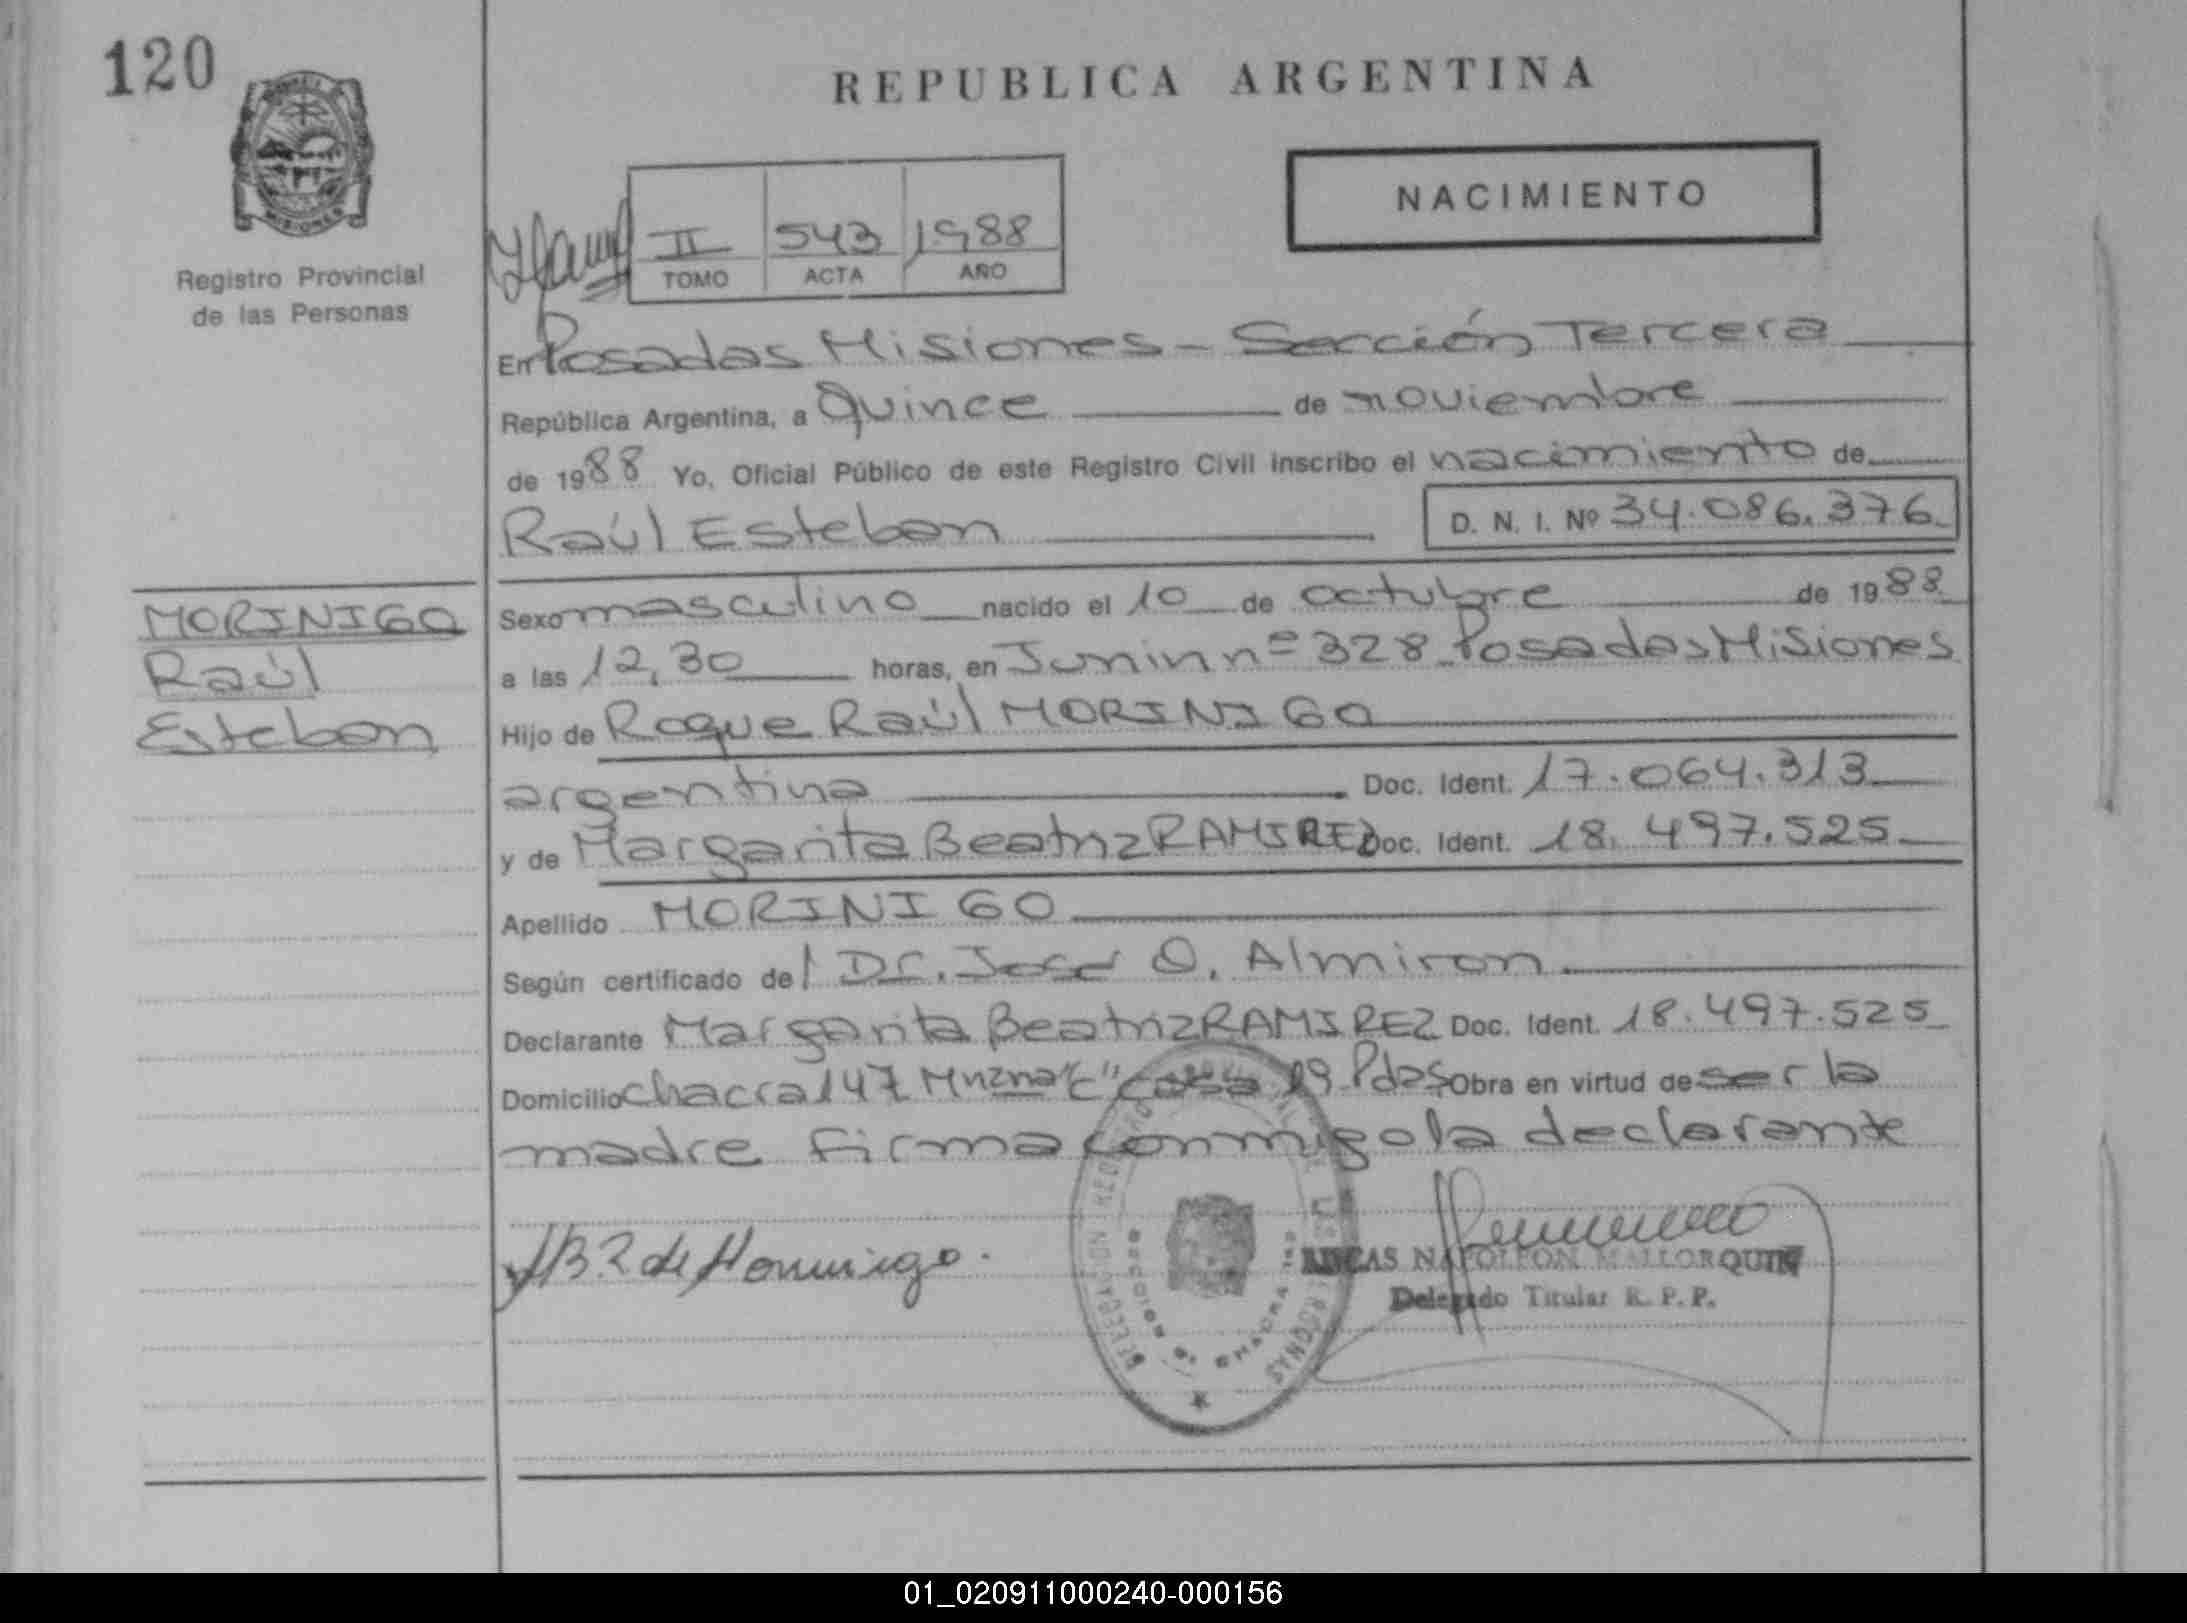 120
REPUBLICA ARGENTINA
NACIMIENTO
II 543 1988
TOMO ACTA AÑO
MISIONES
Registro Provincial
de las Personas
En Posadas Misiones - Sección Tercera
República Argentina, a Quince de noviembre
de 1988 Yo, Oficial Público de este Registro Civil inscribo el nacimiento de
Raúl Esteban D. N. I. Nº 34.086.376
MORINIGO
Raúl
Esteban
Sexo masculino nacido el 10 de octubre de 1988
a las 12,30 horas, en Junin nº 328 Posadas Misiones
Hijo de Roque Raúl MORINIGO
argentina Doc. Ident. 17.064.313
y de Margarita Beatriz RAMIREZ Doc. Ident. 18.497.525
Apellido MORINIGO
Según certificado del Dr. José O. Almiron
Declarante Margarita Beatriz RAMIREZ Doc. Ident. 18.497.525
Domicilio chacra 147 Mnzna "C" casa 19 Pdas Obra en virtud de ser la
madre firma conmigo la declarante
LUCAS NAPOLEON MALLORQUIN
Delegado Titular R. P. P.
01_020911000240-000156